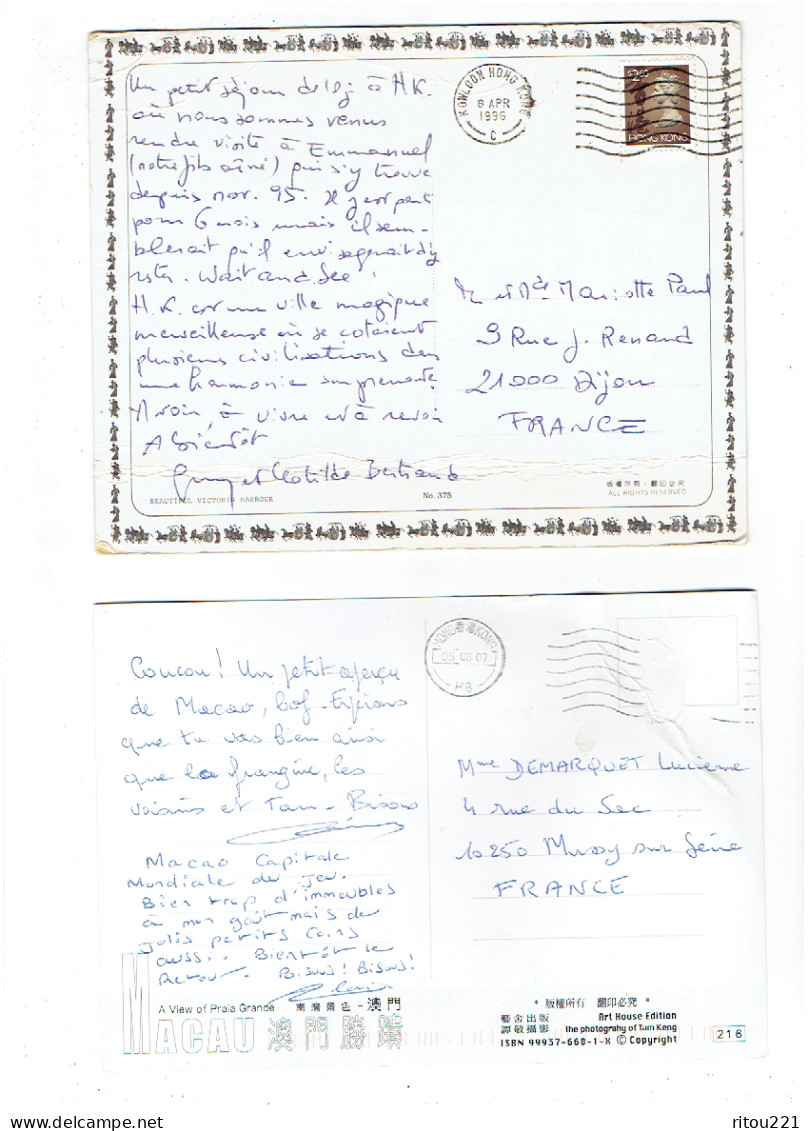 Un petit séjour de 10j à H.K.
où nous sommes venus
rendre visite à Emmanuel
(notre fils aîné) qui s'y trouve
depuis nov. 95. Il y est parti
pour 6 mois mais il sem-
blerait qu'il envisagerait d'y
rester. Wait and See!
H.K. est une ville magique
merveilleuse où se cotoient
plusieurs civilisations dans
une harmonie surprenante.
A voir, à vivre et à revoir
A bientôt
Guy et Clotilde Bertrand
KOWLOON HONG KONG
6 APR
1996
C
$2.10
HONG KONG
M et Mde Mariotte Paul
9 Rue J. Renard
21000 Dijon
FRANCE
BEAUTIFUL VICTORIA HARBOUR
No. 375
版權所有·翻印必究
ALL RIGHTS RESERVED
Coucou! Un petit aperçu
de Macao, bof. Espérons
que tu vas bien ainsi
que la frangine, les
voisins et Tam. Bisous
Macao Capitale
Mondiale du Jeu.
Bien trop d'immeubles
à mon goût mais de
jolis petits coins
aussi. Bientôt le
Retour. Bisous! Bisous!
HONG 香港 KONG
05.06.07
H8
Mme DEMARQUET Lucienne
4 rue du Sec
10250 Mussy sur Seine
FRANCE
A View of Praia Grande 南灣景色 - 澳門
MACAU 澳門勝蹟
* 版權所有 翻印必究 *
藝舍出版 Art House Edition
譚敬攝影 The photograhy of Tam Keng
ISBN 99937-668-1-X © Copyright
216
ritou221